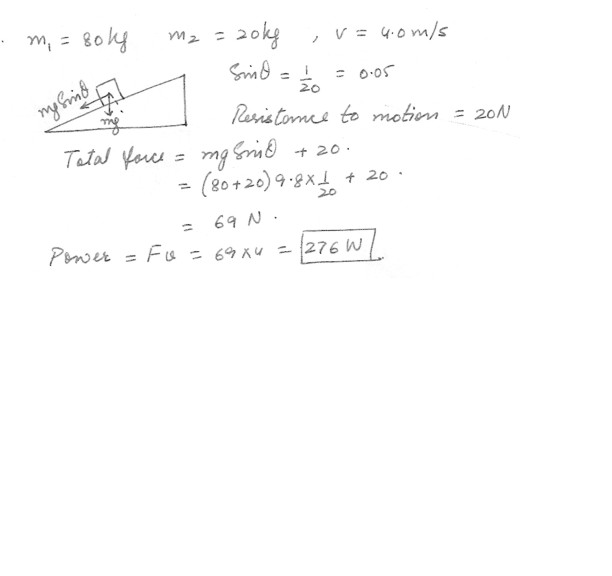 . m₁ = 80kg m₂ = 20kg , v = 4.0 m/s
Sinθ = 1/20 = 0.05
mg Sinθ
mg
Resistance to motion = 20N
Total force = mg Sinθ + 20.
= (80+20) 9.8 × 1/20 + 20.
= 69 N.
Power = Fv = 69 x 4 = 276 W